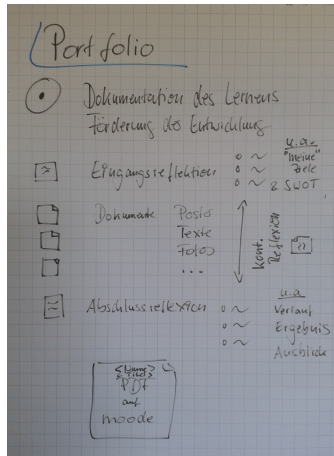 Portfolio
Dokumentation des Lernens
Förderung des Entwicklung
u.a.
Eingangsreflektion
"meine"
Ziele
& SWOT
Dokumente Poster
Texte
Fotos
...
kont. Reflexion
Abschlussreflexion
u.a
Verlauf
Ergebnis
Ausblick
<Name>
<Titel>
PDF
auf
moodle